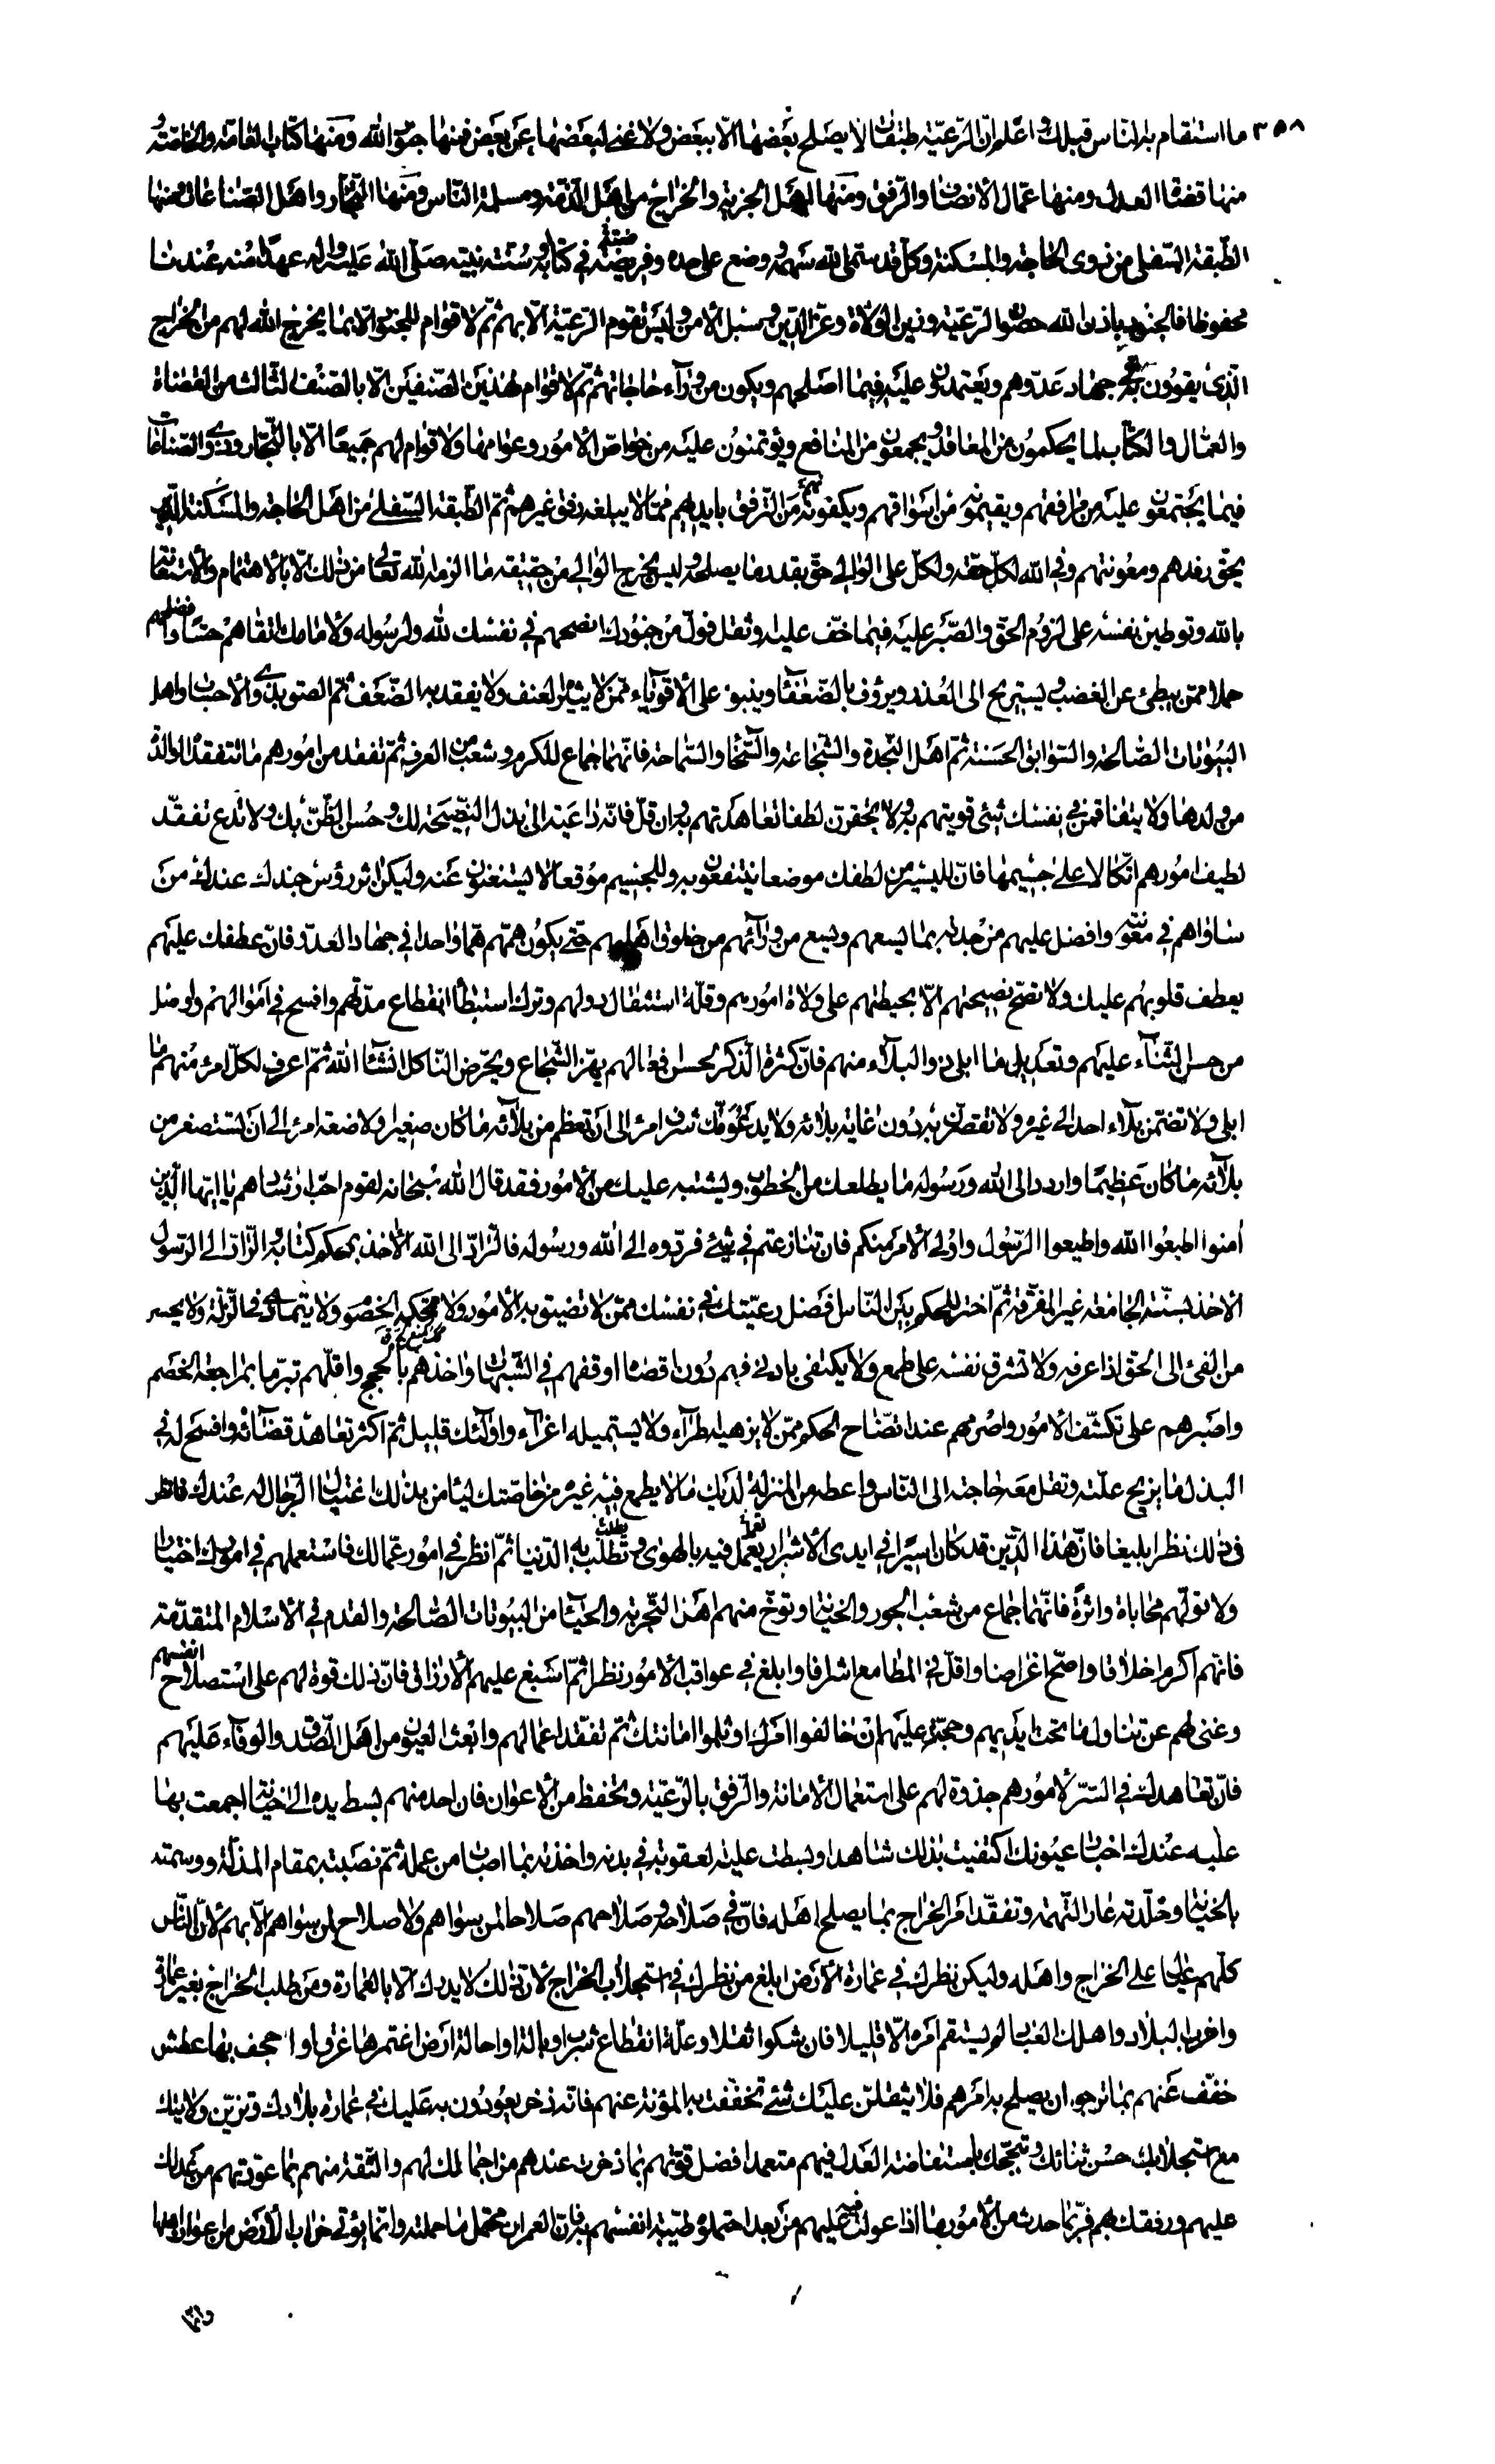 ٣٥٨ ما استقام به الناس قبلك و اعلم ان الرعيّة طبقات لا يصلح بعضها الّا ببعض ولا غنى لبعضها عن بعض فمنها جنود الله ومنها كتّاب العامّة والخاصّة و
منها قضاة العدل ومنها عمّال الانصاف والرّفق ومنها اهل الجزية والخراج من اهل الذّمّة ومسلمة النّاس ومنها التّجّار واهل الصّناعات ومنها
الطّبقة السّفلى من ذوى الحاجة والمسكنة وكلّ قد سمّى الله سهمه ووضع على حده وفريضته في كتابه او سنّة نبيّه صلّى الله عليه واله عهدا منه عندنا
محفوظا فالجنود باذن الله حصون الرّعيّة وزين الولاة وعزّ الدّين وسبل الأمن وليس تقوم الرّعيّة الّا بهم ثمّ لا قوام للجنود الّا بما يخرج الله لهم من الخراج
الّذى يقوون به في جهاد عدّوهم ويعتمدون عليه فيما اصلحهم ويكون من ورآء حاجاتهم ثمّ لا قوام لهذين الصّنفين الّا بالصّنف الثّالث من القضاة
والعمّال والكتّاب لما يحكمون من المعاقد ويجمعون من المنافع ويؤتمنون عليه من خواصّ الأمور وعوامها ولا قوام لهم جميعًا الّا بالتّجّار وذوى الصّناعات
فيما يجتمعون عليه من مرافقهم ويقيمونه من اسواقهم ويكفونهم من التّرفق بايديهم ممّا لا يبلغه رفق غيرهم ثمّ الطّبقة السّفلى من اهل الحاجة والمسكنة الّذين
يحقّ رفدهم ومعونتهم وفي الله لكلّ حقّه ولكلّ على الوالى حقّ بقدر ما يصلحه وليس يخرج الوالى من حقيقة ما الزمه الله تعالى من ذلك الّا بالاهتمام والاستعانة
بالله وتوطين نفسه على لزوم الحقّ والصّبر عليه فيما خفّ عليه وثقل فولّ من جنودك انصحهم في نفسك لله ولرسوله ولأمامك واتقاهم جيبًا وافضلهم
حلما ممّن يبطئ عن الغضب ويستريح الى العذر ويرؤف بالضّعفاء وينبو على الأقوياء ممّن لا يثيره العنف ولا يقعد به الضّعف ثمّ الصق بذوى الأحساب واهل
البيوتات الصّالحة والسّوابق الحسنة ثمّ اهل النّجدة والشّجاعة والسّخاء والسّماحة فانّهم جماع للكرم وشعب من العرف ثمّ تفقد من امورهم ما يتفقده الوالدان
من ولدهما ولا يتفاقمنّ في نفسك شئ قويتهم به ولا تحقرن لطفا تعاهدتهم به وان قلّ فانّه داعية الى بذل النّصيحة لك وحسن الظّنّ بك ولا تدع تفقّد
لطيف امورهم اتّكالا على جسيمها فانّ لليسير من لطفك موضعا ينتفعون به وللجسيم موقعا لا يستغنون عنه وليكن اثر رؤس جندك عندك من
ساواهم في معونته وافضل عليهم من جدته بما يسعهم ويسع من ورآئهم من خلوف اهليهم حتى يكون همّهم همّا واحدا في جهاد العدّو فانّ عطفك عليهم
يعطف قلوبهم عليك ولا تصحّ نصيحتهم الّا بحيطتهم على ولاة امورهم وقلّة استثقال دولهم وترك استبطاء انقطاع مدّتهم وافسح في امالهم وواصل
من حسن الثّنآء عليهم وتعديد ما ابلى ذووا البلاء منهم فانّ كثرة الذّكر لحسن فعالهم يهزّ الشّجاع ويحرّض النّاكل انشآء الله ثمّ اعرف لكلّ امرئ منهم ما
ابلى ولا تضمّن بلآء احد الى غيره ولا تقصّرنّ به دون غاية بلائه ولا يدعونّك شرف امرئ الى ان تعظم من بلآئه ما كان صغيرا ولا ضعة امرئ الى ان تستصغر من
بلآئه ما كان عظيمًا واردد الى الله ورسوله ما يضلعك من الخطوب ويشتبه عليك من الأمور فقد قال الله سبحانه لقوم احبّ ارشادهم يا ايّها الّذين
امنوا اطيعوا الله واطيعوا الرّسول واولى الأمر منكم فان تنازعتم في شئ فردّوه الى الله ورسوله فالرّادّ الى الله الأخذ بمحكم كتابه والرّادّ الى الرّسول
الاخذ بسنّته الجامعة غير المفرّقة ثمّ اختر للحكم بين النّاس افضل رعيّتك في نفسك ممّن لا تضيق به الأمور ولا تمحّكه الخصوم ولا يتمادى في الزّلّة ولا يحصر
من الفئ الى الحقّ اذا عرفه ولا تشرف نفسه على طمع ولا يكتفى بادنى فهم دون اقصاه اوقفهم في الشّبهات واخذهم بالحجج واقلّهم تبرّما بمراجعة الخصم
واصبرهم على تكشّف الأمور واصرمهم عند اتّضاح الحكم ممّن لا يزدهيه اطراء ولا يستميله اغرآء واولئك قليل ثمّ اكثر تعاهد قضآئه وافسح له في
البذل ما يزيح علّته وتقلّ معه حاجته الى النّاس واعطه من المنزلة لديك ما لا يطمع فيه غيره من خاصّتك ليأمن بذلك اغتيال الرّجال له عندك فانظر
فى ذلك نظرا بليغا فانّ هذا الدّين قد كان اسيرا في ايدى الأشرار يعمل فيه بالهوى وتطلب به الدّنيا ثمّ انظر في امور عمّالك فاستعملهم في امورك اختبارا
ولا تولّهم محاباة واثرةً فانّهما جماع من شعب الجور والخيانة وتوخّ منهم اهل التّجربة والحياء من البيوتات الصّالحة والقدم في الأسلام المتقدّمة
فانّهم اكرم اخلاقا واصحّ اغراضا واقلّ في المطامع اشرافا وابلغ في عواقب الأمور نظرا ثمّ اسبغ عليهم الأرزاق فانّ ذلك قوة لهم على استصلاح انفسهم
وغنى لهم عن تناول ما تحت ايديهم وحجّة عليهم ان خالفوا امرك او ثلموا امانتك ثمّ تفقّد اعمالهم وابعث العيون من اهل الصّدق والوفآء عليهم
فانّ تعاهدك في السّرّ لأمورهم حدوة لهم على استعمال الأمانة والرّفق بالرّعيّة وتحفظ من الأعوان فان احد منهم بسط يده الى خيانة اجمعت بها
عليه عندك اخبار عيونك اكتفيت بذلك شاهدا وبسطت عليه العقوبة في بدنه واخذته بما اصاب من عمله ثمّ نصبته بمقام المذلّة ووسمته
بالخيانة وقلّدته عار التّهمة وتفقّد امر الخراج بما يصلح اهله فانّ في صلاحه وصلاحهم صلاحا لمن سواهم ولا صلاح لمن سواهم الّا بهم لأنّ النّاس
كلّهم عيال على الخراج واهله وليكن نظرك في عمارة الأرض ابلغ من نظرك في استجلاب الخراج لأنّ ذلك لا يدرك الّا بالعمارة ومن طلب الخراج بغير عمارة
واخرب البلاد واهلك العباد لم يستقم امره الّا قليلا فان شكوا ثقلا او علّة او انقطاع شرب او بالّة او احالة ارض اغتمرها غرق او اجحف بها عطش
خفّف عنهم بما ترجو ان يصلح به امرهم فلا يثقلنّ عليك شئ تخفّفت به المؤنة عنهم فانّه ذخر يعودون به عليك في عمارة بلادك وتزيّن ولايتك
مع استجلابك حسن ثنائك وتبجّحك باستفاضة العدل فيهم متعمدا فضل قوّتهم بما ذخرت عندهم من اجمامك لهم والثّقة منهم بما عوّدتهم من عدلك
عليهم ورفقك بهم فربّما حدث من الأمور ما اذا عولت فيه عليهم من بعد احتملوه طيّبة انفسهم به فانّ العمران محتمل ما حملته وانّما يؤتى خراب الأرض من اعواز اهلها